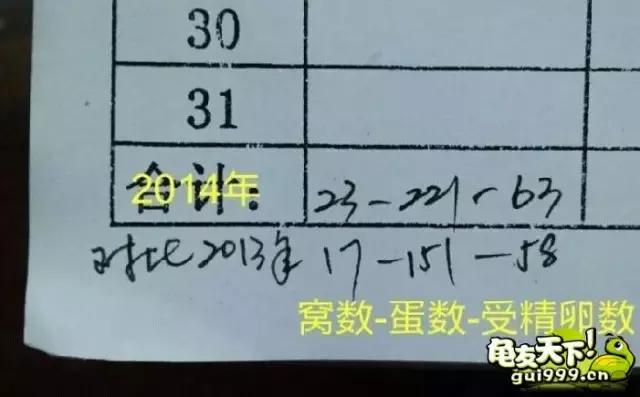 30
31
合计:
2014年
23-221-63
对比2013年 17-151-58
窝数-蛋数-受精卵数
龟友天下!
gui999.cn